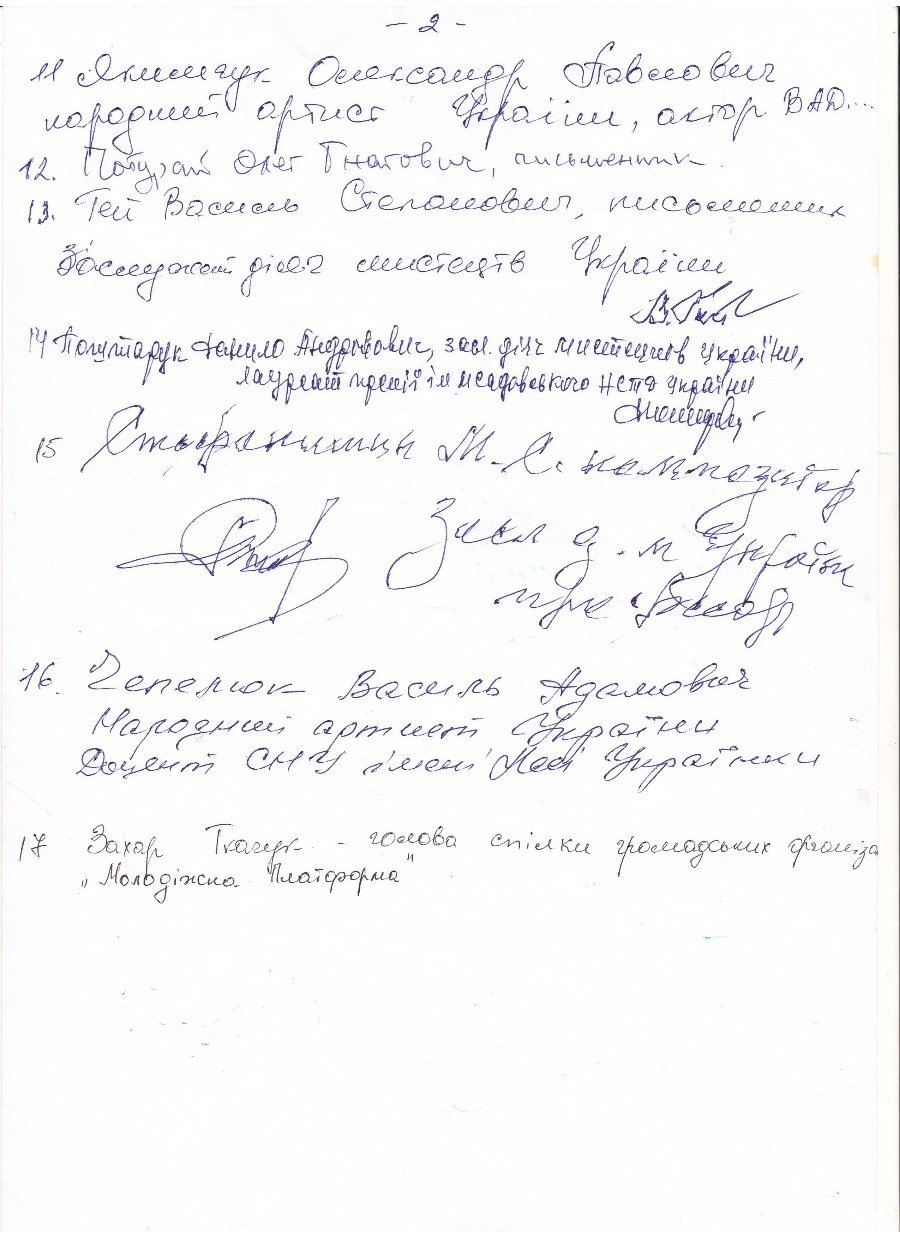 - 2 -
11 Якимчук Олександр Павлович
народний артист України, актор ВАД....
12. Потурай Олег Гнатович, письменник.
13. Гей Василь Степанович, письменник
Заслужений діяч мистецтв України
14 Поштарук Данило Андрійович, засл. діяч мистецтв України,
лауреат премії ім М.Садовського НСТД України
15 М. С. композитор
Засл д. м України
16. Чепелюк Василь Адамович
Народний артист України
Доцент СНУ імені Лесі Українки
17 Захар Ткачук - голова спілки громадських організа
„Молодіжна Платформа"